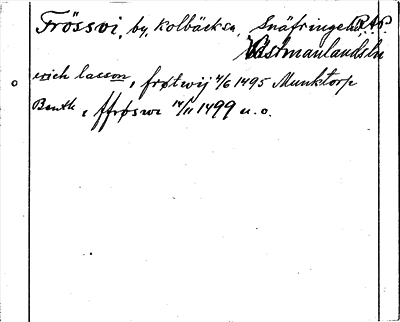 Frössvi, by, Kolbäcks sn, Snäfringe hd, R.A.P.
Västmanlands län
erich lasson, frøtwij 4/6 1495 Munktorp
Benth, ffrøswi 14/11 1499 u.o.